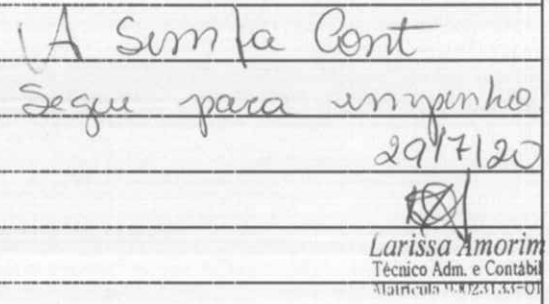 A Semfa Cont
Segue para empenho
29/7/20
Larissa Amorim
Técnico Adm. e Contábil
Matrícula